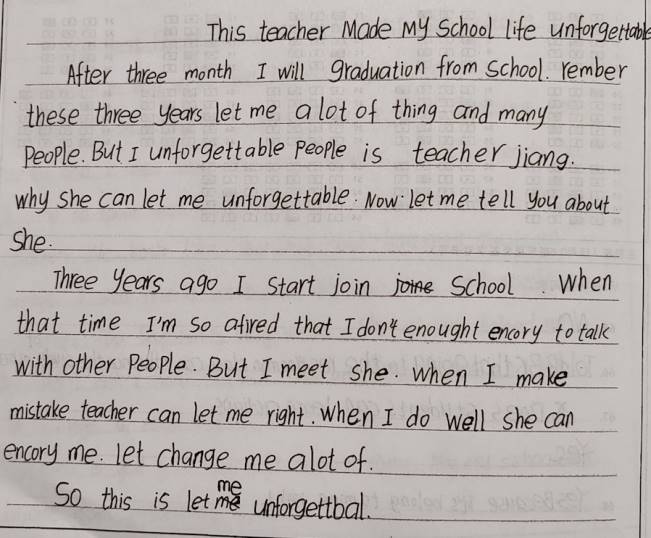 This teacher Made My School life unforgettable
After three month I will graduation from school. rember
these three years let me a lot of thing and many
People. But I unforgettable people is teacher jiang.
why she can let me unforgettable. Now let me tell you about
she.
Three years ago I start join joine school. When
that time I'm so afired that I don't enought encory to talk
with other People. But I meet she. when I make
mistake teacher can let me right. When I do well she can
encory me. let change me a lot of.
So this is let me me unforgettbal.